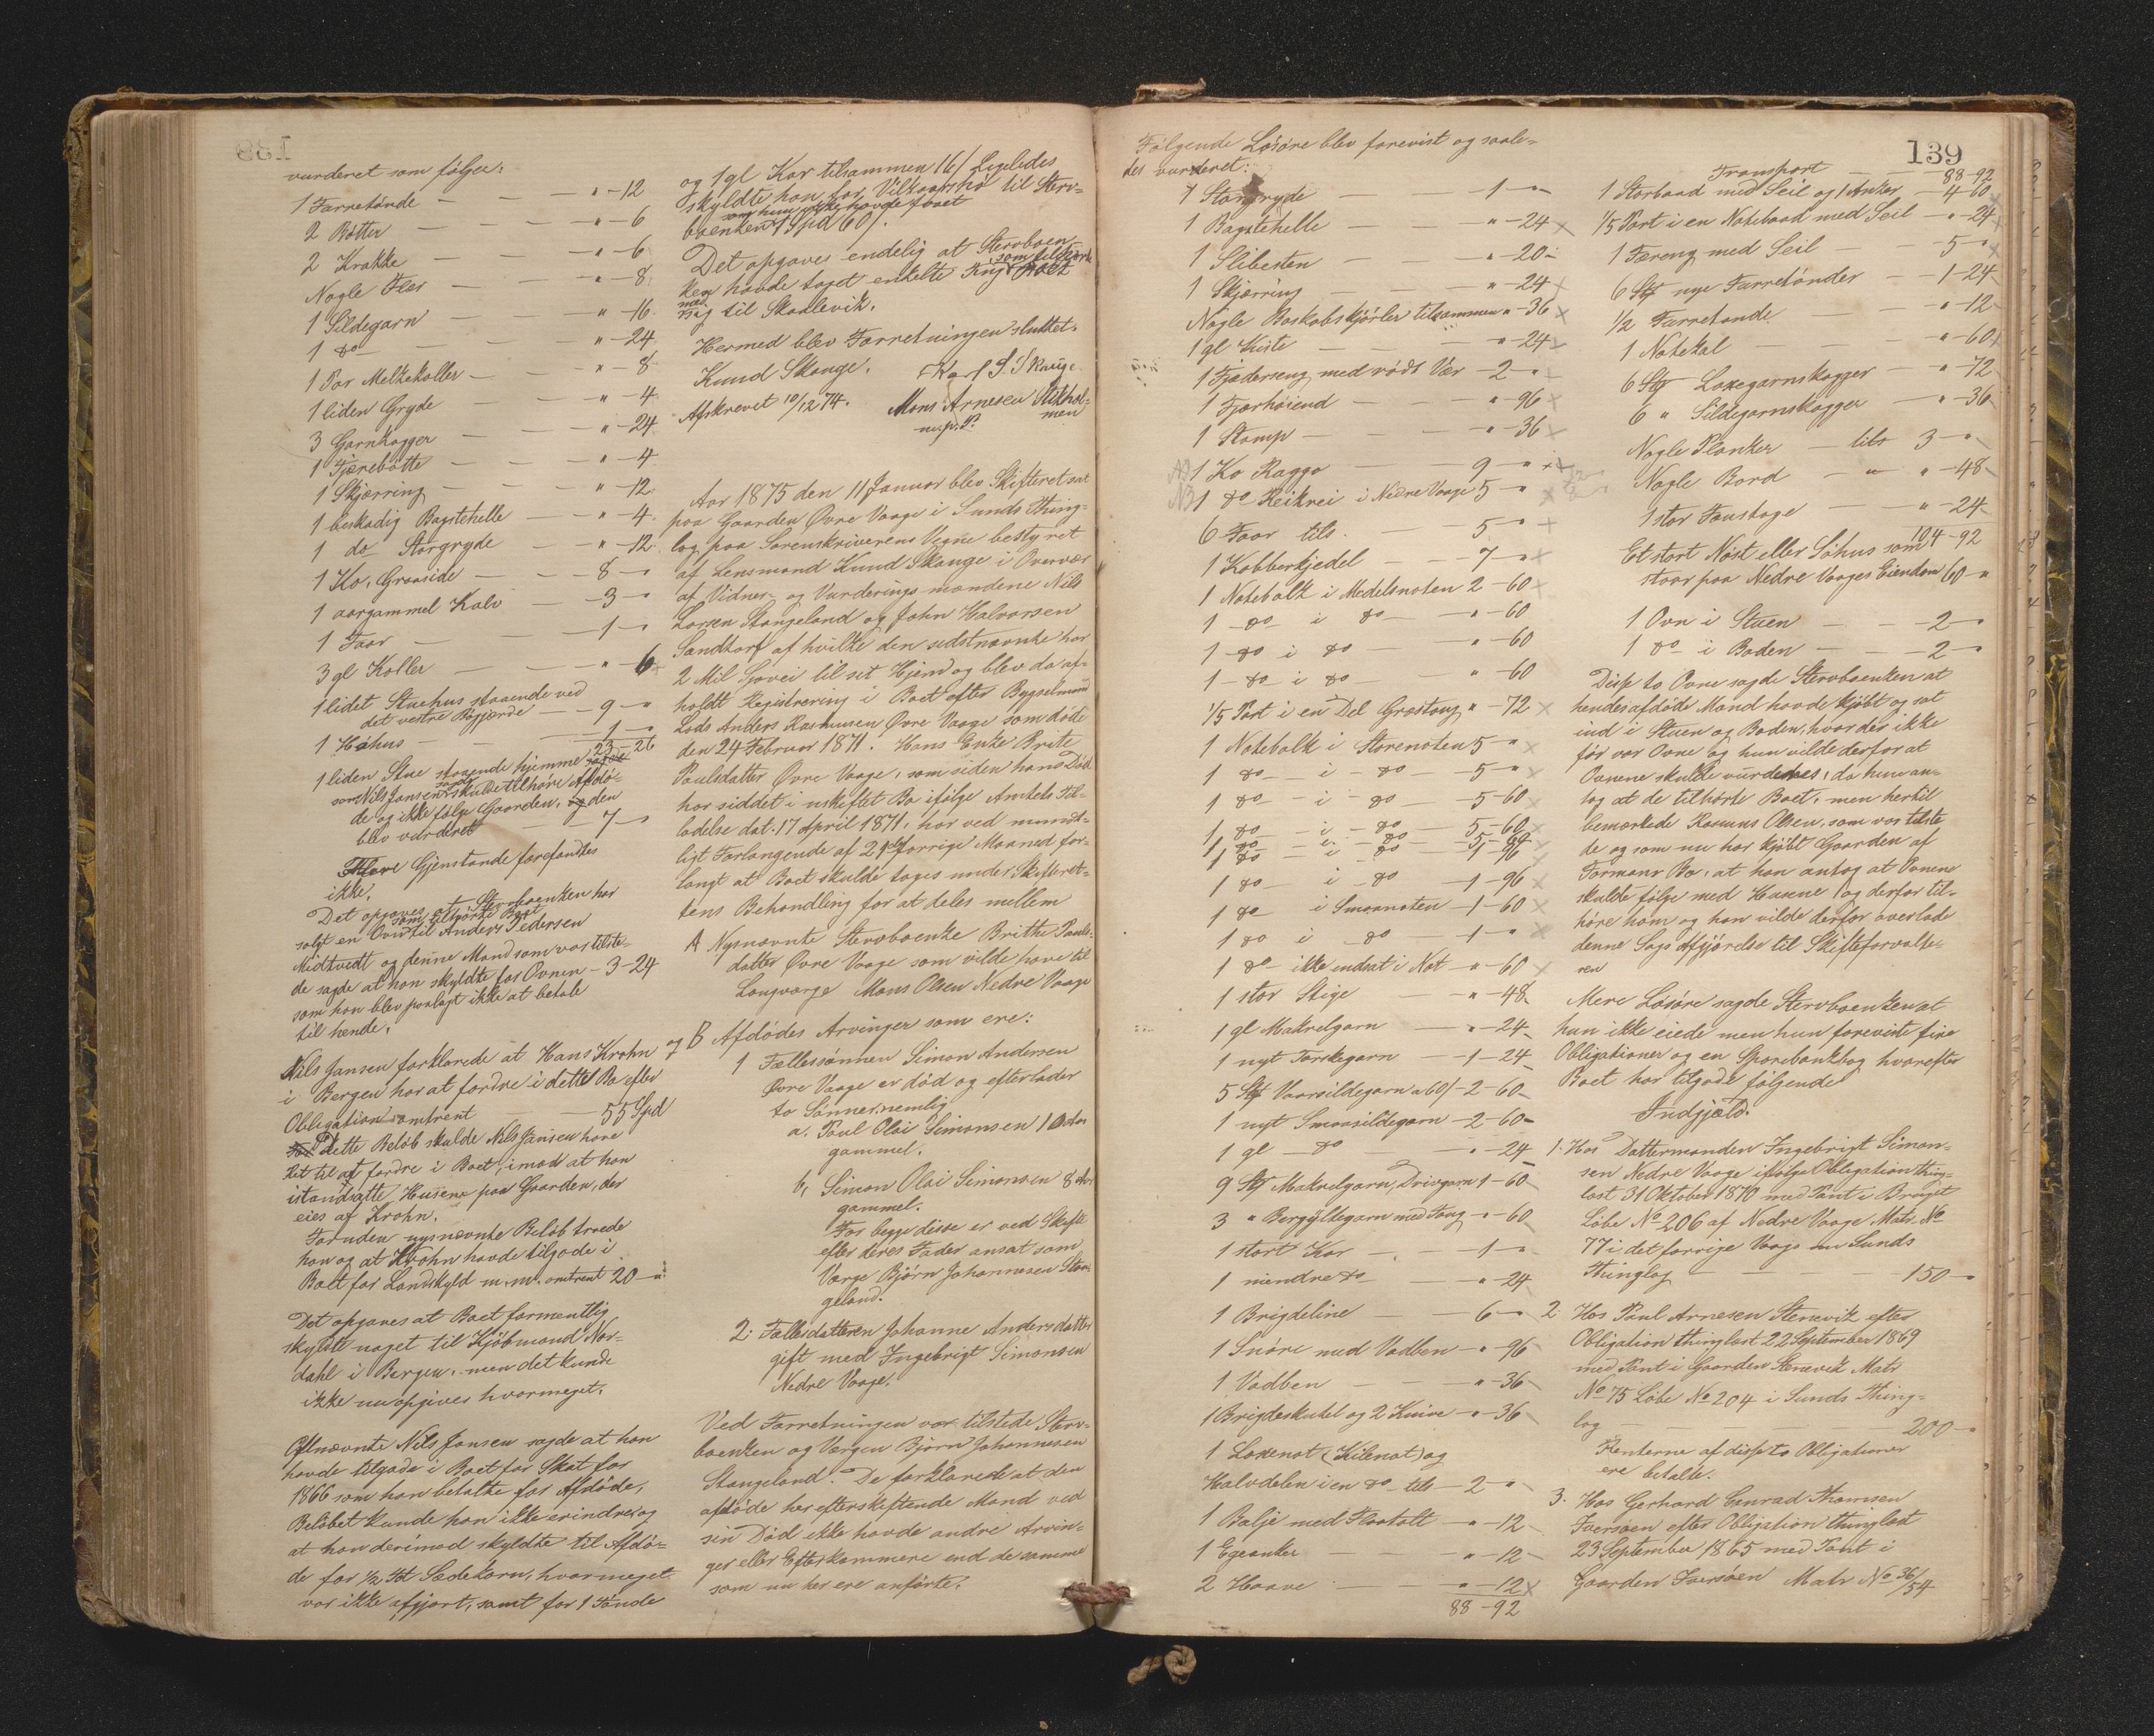 vurderet som følger:
1 Tarretönde — — " - 12
2 Bøtter — — " - 6
2 Krakke — — " - 6
Nogle Flær — — " - 8
1 Sildegarn — — " - 16
1 do — — " - 24
1 Par Melkekoller — — " - 8
1 liden Gryde — — " - 4
3 Garnkagger — — " - 24
1 Tjærebøtte — — " - 4
1 Skjærring — — " - 12
1 beskadig Bagstehelle — " - 4
1 do Storgryde — " - 12
1 Ko, Graaside — — 8 - "
1 aargammel Kalv — 3 - "
1 Faar — — 1 - "
3 gl Koller — — " - 6
1 lidet Stuehus staaende ved
det vestre Bøgjærde — 9 - "
1 Høhus — — 1 - "
23 - 26
1 liden Stue staaende hjemme
som Nils Jansen sagde skulde tilhøre Afdø-
de og ikke følge Gaarden, og den
blev vurderet — 7 - "
Flere Gjenstande forefandtes
ikke.
Det opgaves at Stervboenken har
solgt en Ovn som tilhørte Boet til Anders Pedersen
Midtvedt og denne Mand som var tilste-
de sagde at han skyldte for Ovnen - 3 - 24
som han blev paalagt ikke at betale
til hende.
Nils Jansen forklarede at Hans Krohn
i Bergen har at fordre i dette Bo efter
Obligation omtrent — 55 Spd
dette Beløb skulde Nils Jansen have
Ret til at fordre i Boet, imod at han
istandsatte Husene paa Gaarden, der
eies af Krohn.
Foruden nysnævnte Beløb troede
han og at Krohn havde tilgode i
Boet for Landskyld m.m. omtrent 20 - "
Det opgaves at Boet formentlig
skyldte noget til Kjøbmand Nor-
dahl i Bergen, men det kunde
ikke nu opgives hvormeget.
Oftnævnte Nils Jansen sagde at han
havde tilgode i Boet for Skat for
1866 som han betalte for Afdøde,
Beløbet kunde han ikke erindre og
at han derimod skyldte til Afdø-
de for 1/2 Td Sædekorn, hvormeget
var ikke afgjort, samt for 1 Tønde
og 1 gl Kar tilsammen 16/ Ligeledes
skyldte han for Vilkaarshø til Sterv-
boenken som hun ikke havde faaet 1 Spd 60/.
Det opgaves endelig at Stervboen-
ken havde taget enkelte Ting som tilhørte Boet
med sig til Skaalevik.
Hermed blev Forretningen sluttet.
Knud Skauge. Karl S. Skauge
Afskrevet 10/12 74. Mons Arnesen Stithol-
men
m.p.P.
Aar 1875 den 11 Januar blev Skifteret sat
paa Gaarden Øvre Vaage i Sunds Thing-
lag paa Sorenskriverens Vegne bestyret
af Lensmand Knud Skauge i Overvær
af Vidner- og Vurderingsmændene Nils
Larsen Stangeland og John Halvorsen
Sandtorf af hvilke den sidstnævnte har
2 Mil Sjøvei til sit Hjem og blev da af-
holdt Registrering i Boet efter Bygselmand
Lods Anders Rasmusen Øvre Vaage som døde
den 24 Februar 1871. Hans Enke Brite
Paulsdatter Øvre Vaage, som siden hans Død
har siddet i uskiftet Bo ifølge Amtets Til-
ladelse dat. 17 April 1871, har ved mundt-
ligt Forlangende af 21de forrige Maaned for-
langt at Boet skulde tages under Skifteret-
tens Behandling for at deles mellem
A Nysnævnte Stervboenke Brithe Pauls-
datter Øvre Vaage som vilde have til
Laugværge Mons Olsen Nedre Vaage
og B Afdødes Arvinger som ere:
1 Fællessønnen Simon Andersen
Øvre Vaage er død og efterlader
to Sønner nemlig
a. Paul Olai Simonsen 10 Aar
gammel.
b, Simon Olai Simonsen 8 Aar
gammel.
For begge disse er ved Skifte
efter deres Fader ansat som
Værge Bjørn Johannesen Stan-
geland.
2. Fællesdatteren Johanne Andersdatter
gift med Ingebrigt Simonsen
Nedre Vaage.
Ved Forretningen var tilstede Sterv-
boenken og Værgen Bjørn Johannesen
Stangeland. De forklarede at den
afdøde her efterskiftende Mand ved
sin Død ikke havde andre Arvin-
ger eller Efterkommere end de samme
som nu her ere anførte.
Følgende Løsøre blev forevist og saale-
des vurderet:
1 Storgryde — 1 - "
1 Bagstehelle — " - 24
1 Slibesten — " - 20
1 Skjærring — " - 24
Nogle Boskabskjørler tilsammen " - 36
1 gl Kiste — " - 24
1 Fjæderseng med rødt Vær - 2 - "
1 Fjærhøiend — " - 96
1 Stamp — " - 36
NB 1 Ko Raggo — 9 - "
NB 1 do Heikrei i Nedre Vaage 5 - "
6 Faar tils. — 5 - "
1 Kobberkjedel — 7 - "
1 Notebolk i Medelsnoten 2 - 60
1 do i do — " - 60
1 do i do — " - 60
1 do i do — " - 60
1/5 Part i en Del Grastoug " - 72
1 Notebolk i Storenoten 5 - "
1 do - i - do — 5 - "
1 do - i - do — 5 - 60
1 do - i - do — 5 - 60
1 do - i - do —
1 do - i do — 1 - 96
1 do - i - do — 1 - 96
1 do i Smaanoten - 1 - 60
1 do i do — 1 - "
1 do ikke indsat i Not - " - 60
1 stor Stige — " - 48
1 gl Makrelgarn — " - 24
1 nyt Torskegarn — 1 - 24
5 Stk Vaarsildegarn a 60/ - 2 - 60
1 nyt Smaasildegarn - 2 - 60
1 gl do — " - 24
9 Stk Makrelgarn, Drivgarn 1 - 60
3 " Bergyltegarn med Toug - " - 60
1 stort Kar — 1 - "
1 mindre do — " - 24
1 Brigdeline — 6 - "
1 Snøre med Vadben - " - 96
1 Vadben — " - 36
1 Brigdeskutel og 2 Knive - " - 36
1 Laxenot (Kilenot) og
Halvdelen i en do tils - 2 - "
1 Balje med Flaatolt — " - 12
1 Egeanker — " - 12
2 Haave — " - 12
88 - 92
139
Transport — 88 - 92
1 Storbaad med Seil og 1 Anker - 4 - 60
1/5 Part i en Notebaad med Seil - " - 24
1 Færeng med Seil — 5 - "
6 Stk nye Tarretønder — 1 - 24
1/2 Tarretønde — " - 12
1 Notekal — " - 60
6 Stk Laxegarnskagger — " - 72
6 " Sildegarnskagger — " - 36
Nogle Planker — tils 3 - "
Nogle Bord — " " - 48
1 stor Foustage — " - 24
104 - 92
Et stort Nøst eller Søhus som
staar paa Nedre Vaages Eiendom 60 - "
1 Ovn i Stuen — 2 - "
1 do i Boden — 2 - "
Disse to Ovne sagde Stervboenken at
hendes afdøde Mand havde kjøbt og sat
ind i Stuen og Boden, hvor der ikke
før var Ovne og hun vilde derfor at
Ovnene skulde vurderes, da hun an-
tog at de tilhørte Boet, men hertil
bemærkede Rasmus Olsen, som var tilste-
de og som nu har kjøbt Gaarden af
Formans Bo, at han antog at Ovnene
skulde følge med Husene og derfor til-
høre ham og han vilde derfor overlade
denne Sags Afgjørelse til Skifteforvalte-
ren
Mere Løsøre sagde Stervboenken at
hun ikke eiede men hun foreviste fire
Obligationer og en Sparebankbog hvorefter
Boet har tilgode følgende
Indgjæld.
1. Hos Dattermanden Ingebrigt Simon-
sen Nedre Vaage ifølge Obligation thing-
læst 31 Oktober 1870 med Pant i Bruget
Løbe No 206 af Nedre Vaage Matr. No
77 i det forrige Vaags nu Sunds
Thinglag — 150 - "
2. Hos Paul Arnesen Stensvik efter
Obligation thinglæst 22 September 1869
med Pant i Gaarden Stensvik Matr
No 75 Løbe No 204 i Sunds Thing-
lag — 200 - "
Renterne af disse to Obligationer
ere betalte.
3. Hos Gerhard Conrad Thomsen
Iversøen efter Obligation thinglæst
23 September 1865 med Pant i
Gaarden Iversøen Matr No 36/54